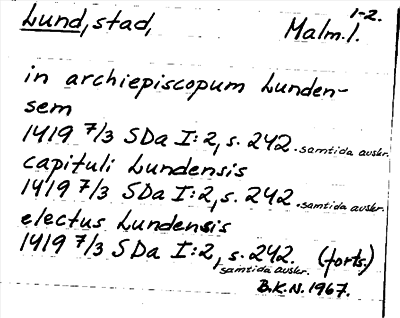 Lund, stad, Malm. l. 1-2.
in archiepiscopum Lunden-
sem
1419 7/3 SDa I:2, s. 242. samtida avskr.
capituli Lundensis
1419 7/3 SDa I:2, s. 242. samtida avskr.
electus Lundensis
1419 7/3 SDa I:2, s. 242. (forts.)
samtida avskr.
B.K.N. 1967.